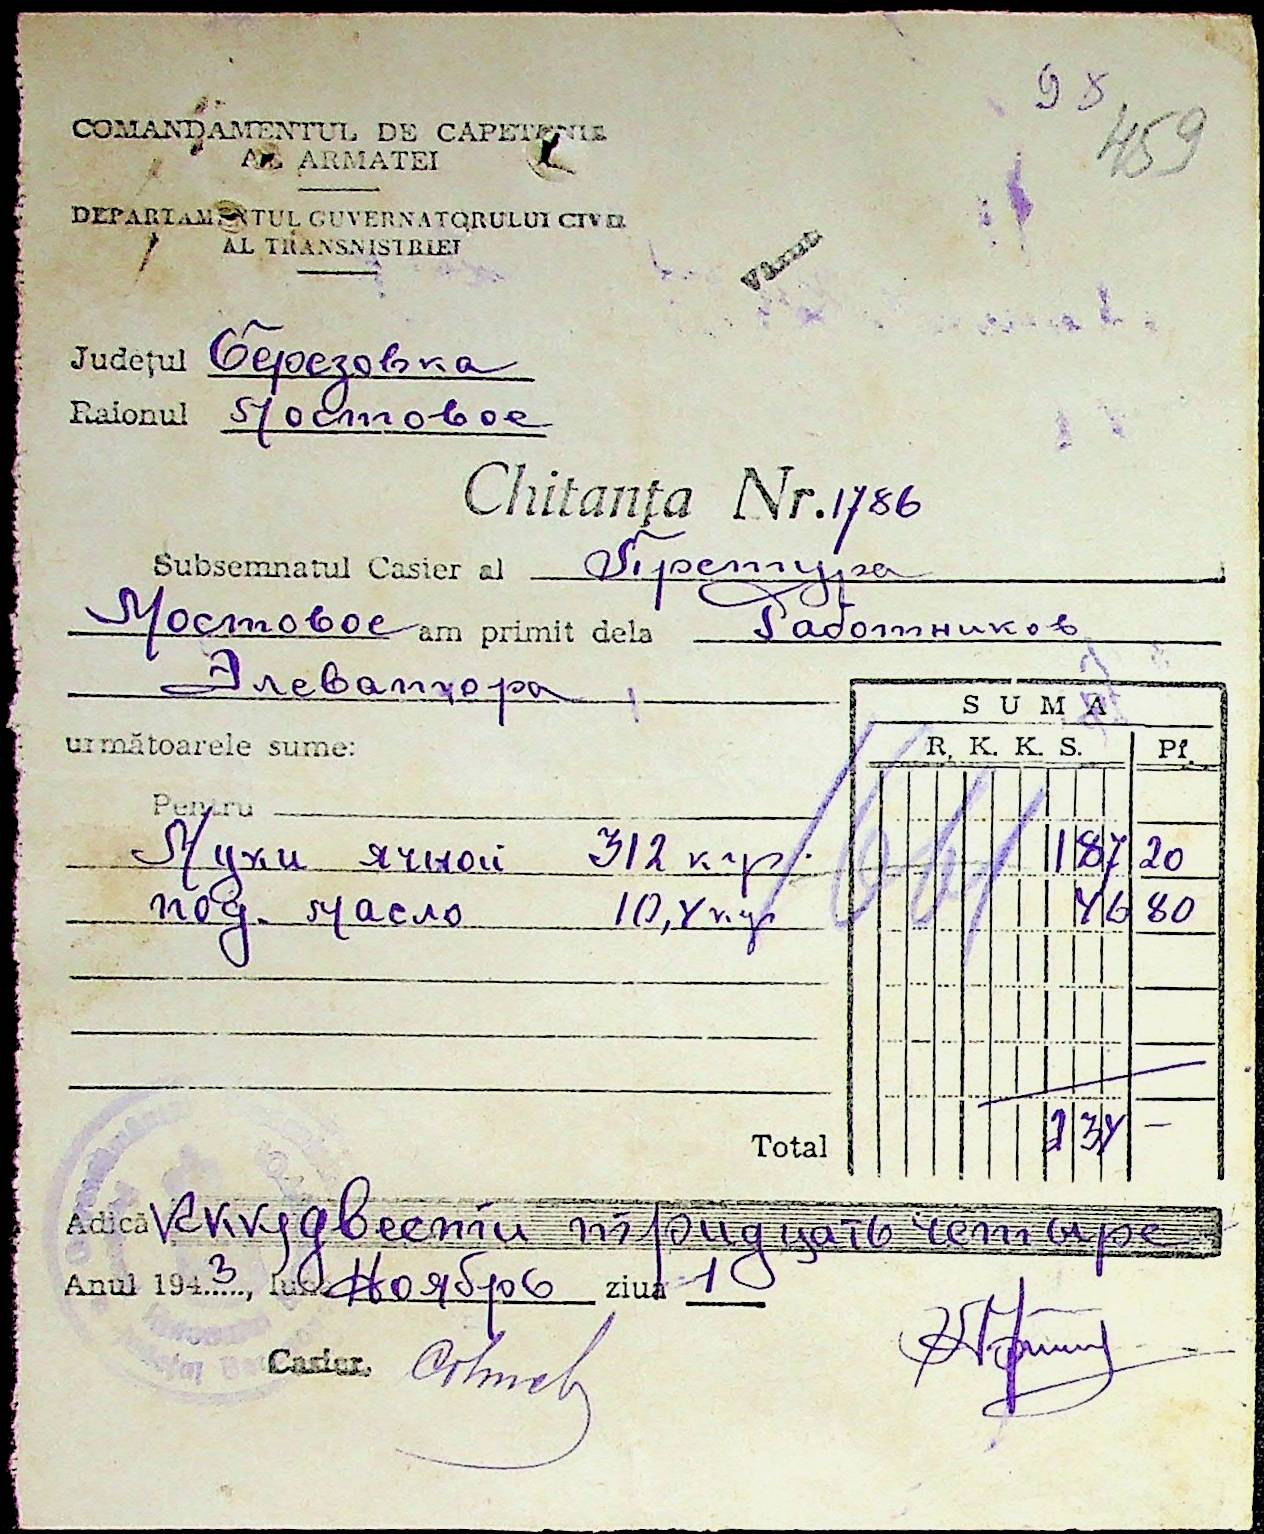 98
459
COMANDAMENTUL DE CAPETENIE
AL ARMATEI
DEPARTAMENTUL GUVERNATORULUI CIVIL
AL TRANSNISTRIEI
Vărsat
Județul Березовка
Raionul Мостовое
Chitanța Nr. 1786
Subsemnatul Casier al Претура
Мостовое am primit dela Работников
Элеватора
SUMA
următoarele sume:
R. K. K. S. Pf.
Pentru
Муки ячной 312 кгр. 187 20
под. масло 10,4 кгр 46 80
Total 234 —
Adică Rккs двести тридцать четыре
Anul 1943, luna Ноябрь ziua 1
Casier.